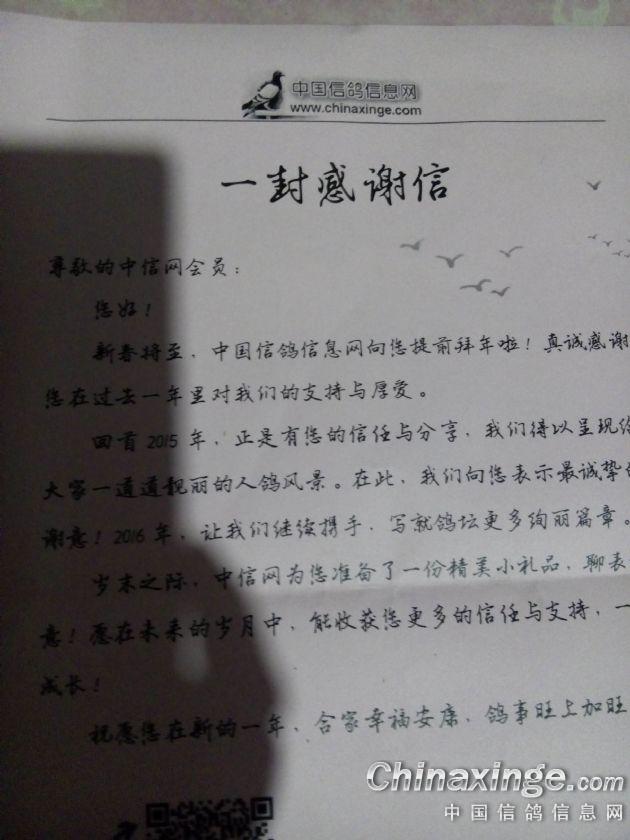 中国信鸽信息网
www.chinaxinge.com
一封感谢信
尊敬的中信网会员：
您好！
新春将至，中国信鸽信息网向您提前拜年啦！真诚感谢
您在过去一年里对我们的支持与厚爱。
回首2015年，正是有您的信任与分享，我们得以呈现给
大家一道道靓丽的人鸽风景。在此，我们向您表示最诚挚的
谢意！2016年，让我们继续携手，写就鸽坛更多绚丽篇章。
岁末之际，中信网为您准备了一份精美小礼品，聊表
意！愿在未来的岁月中，能收获您更多的信任与支持，一
成长！
祝愿您在新的一年，合家幸福安康，鸽事旺上加旺
Chinaxinge.com
中国信鸽信息网